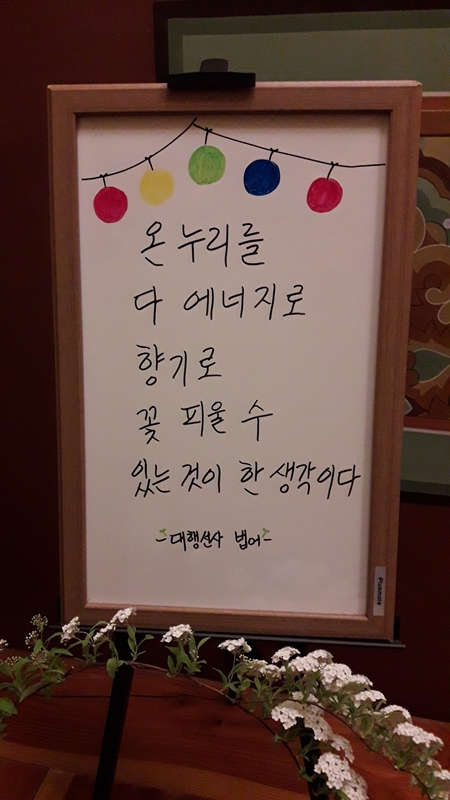 온 누리를
다 에너지로
향기로
꽃 피울 수
있는 것이 한 생각이다
-대행선사 법어-
Plusnote